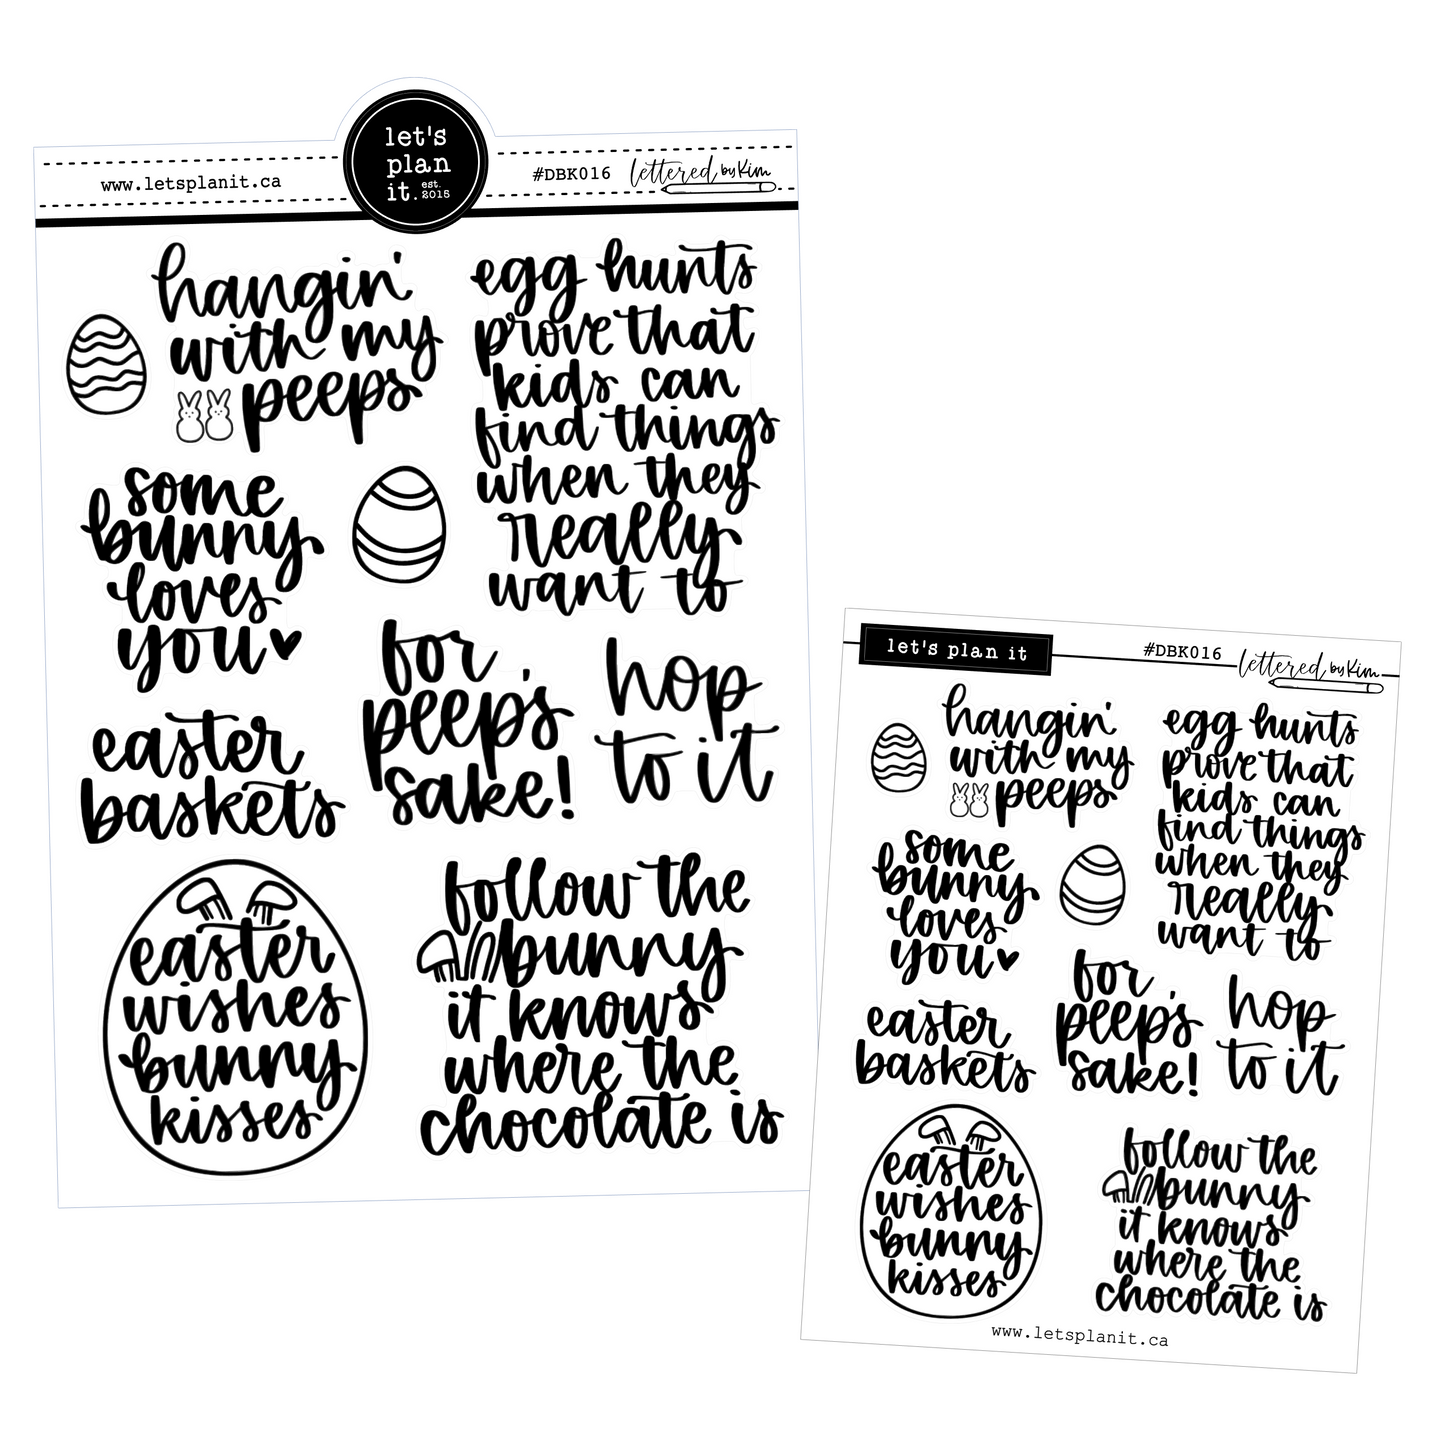 let's
plan
it.
est.
2015
www.letsplanit.ca
#DBK016
lettered by Kim
hangin'
with my
peeps
egg hunts
prove that
kids can
find things
when they
really
want to
some
bunny
loves
you
for
peep's
sake!
hop
to it
easter
baskets
easter
wishes
bunny
kisses
follow the
bunny
it knows
where the
chocolate is
let's plan it
#DBK016
lettered by Kim
hangin'
with my
peeps
egg hunts
prove that
kids can
find things
when they
really
want to
some
bunny
loves
you
for
peep's
sake!
hop
to it
easter
baskets
easter
wishes
bunny
kisses
follow the
bunny
it knows
where the
chocolate is
www.letsplanit.ca